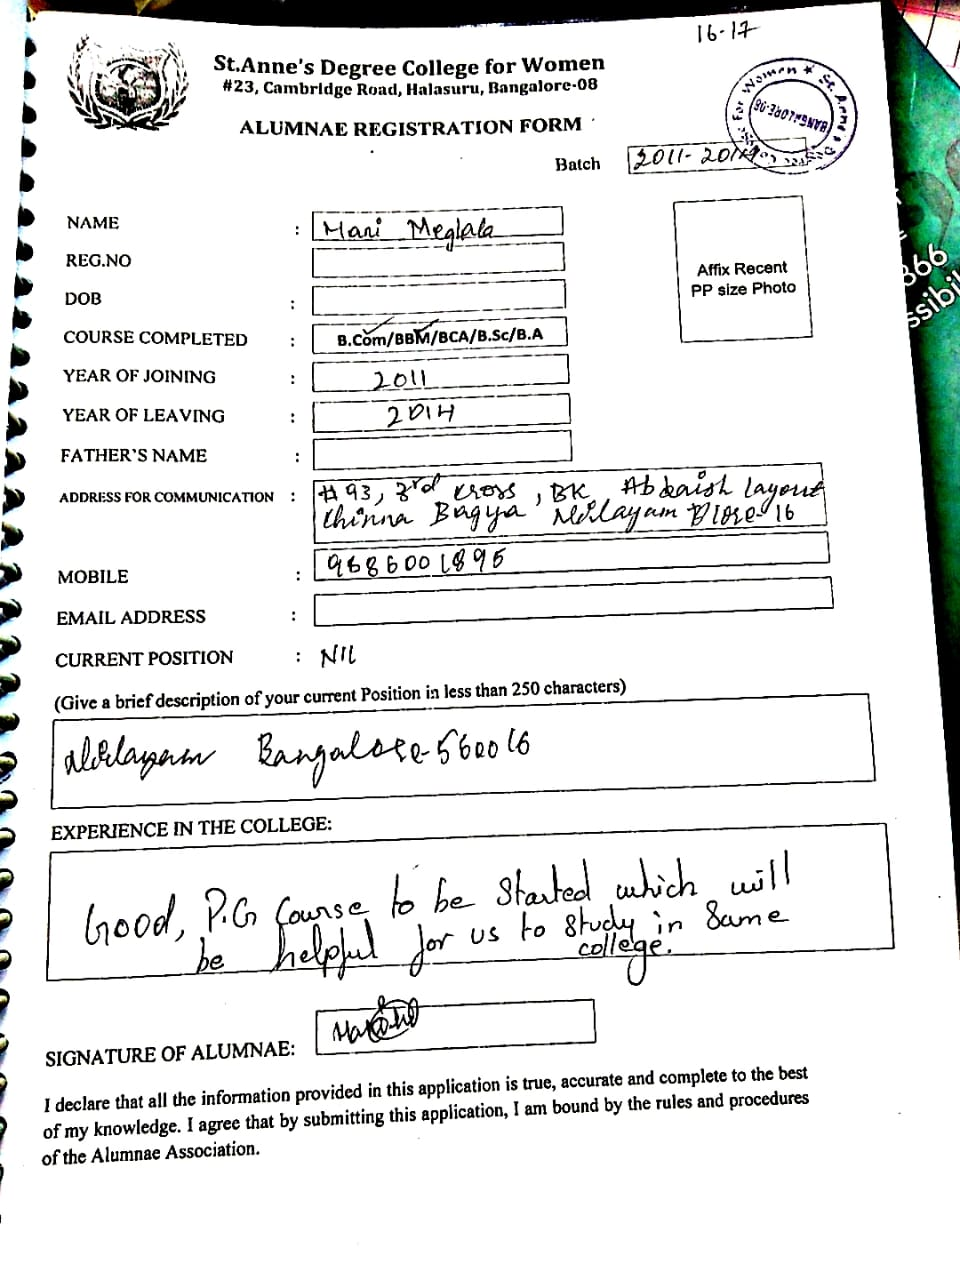 16-17
St.Anne's Degree College for Women
#23, Cambridge Road, Halasuru, Bangalore-08
ALUMNAE REGISTRATION FORM
For Women * St. Anne's Degree College
BANGALORE-08
Batch 2011-2014
NAME : Mani Meglala
REG.NO
DOB :
Affix Recent
PP size Photo
COURSE COMPLETED : B.Com/BBM/BCA/B.Sc/B.A
YEAR OF JOINING : 2011
YEAR OF LEAVING : 2014
FATHER'S NAME :
ADDRESS FOR COMMUNICATION : #93, 3rd cross, BK layout
Chinna Bagya B'lore 16
MOBILE : 9686001895
EMAIL ADDRESS :
CURRENT POSITION : NIL
(Give a brief description of your current Position in less than 250 characters)
Bangalore-560016
EXPERIENCE IN THE COLLEGE:
Good, P.G Course to be Started which will
be helpful for us to study in Same
college.
SIGNATURE OF ALUMNAE:
I declare that all the information provided in this application is true, accurate and complete to the best
of my knowledge. I agree that by submitting this application, I am bound by the rules and procedures
of the Alumnae Association.
366
ssibil